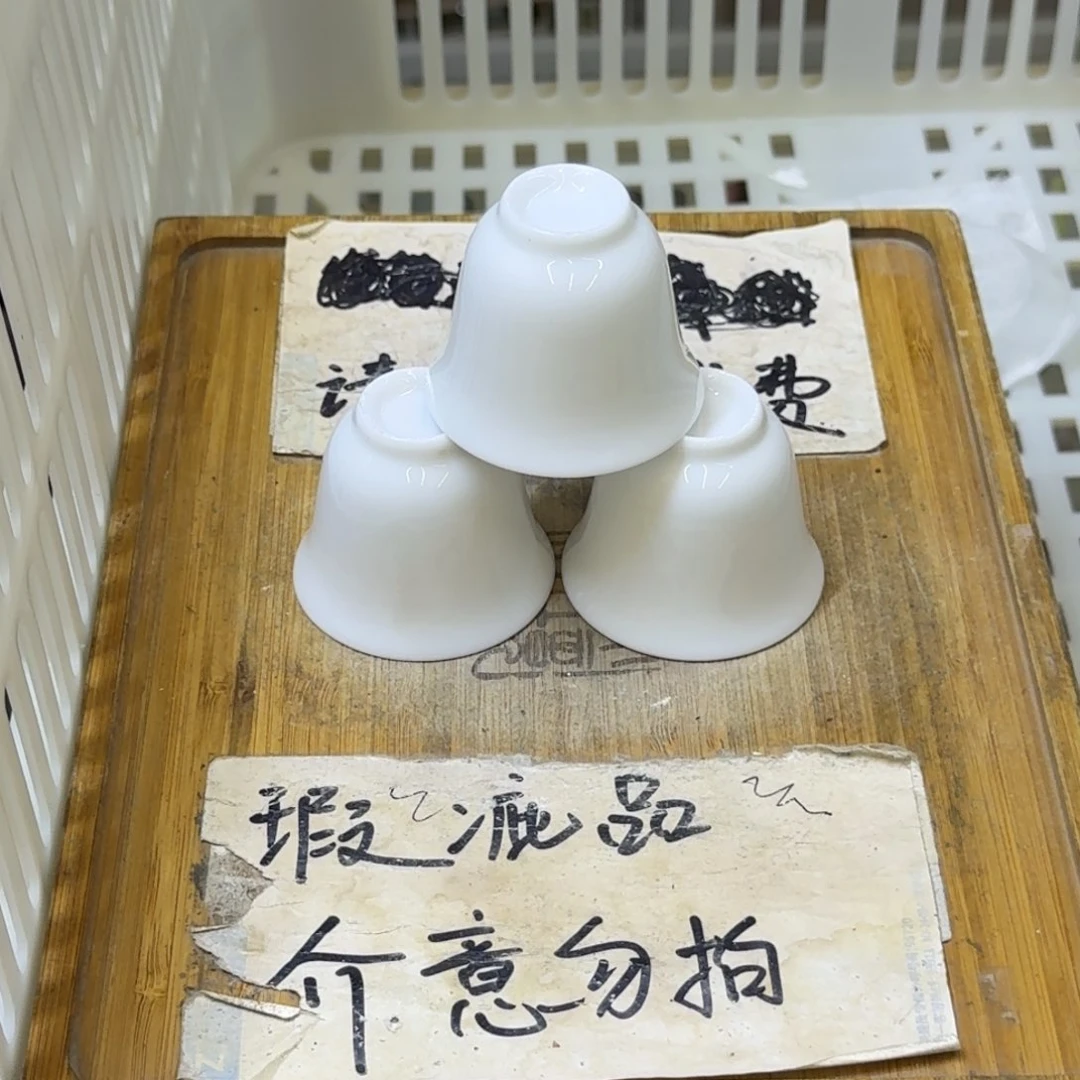 请 费
瑕疵品
介意勿拍